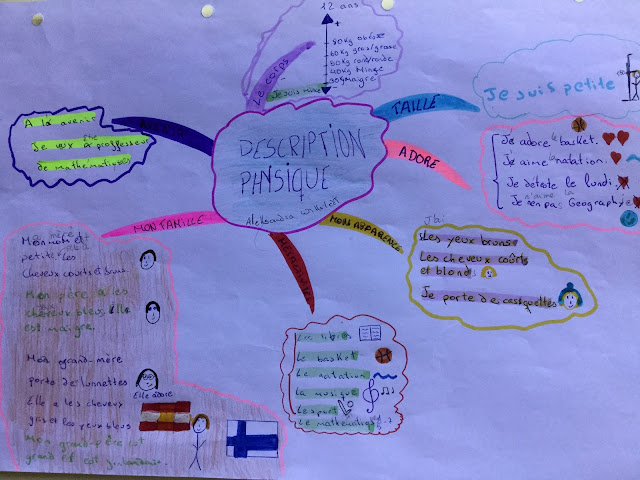 12 ans
+
80kg obèse
60kg gros/grosse
50kg rond/ronde
40kg Mince
30kg maigre
-
Je suis Mince
Le corps
TAILLE
Je suis petite
ADORE
Je adore le basket.
Je aime la natation.
Je déteste le lundi.
n'aime la
Je pas Geographie
A la avenir
Je veux être professeur
de mathématiques
DESCRIPTION
PHYSIQUE
Aleksandra
MON FAMILLE
MON APPARENCE
J'ai
Les yeux bruns
Les cheveux courts
et blond
Je porte de casquettes
Mon mère et
petite Les
cheveux courts et bruns.
Mon père a les
cheveux bleus. Elle
est maigre.
Mon grand-mère
porte de lunnettes
Elle adore
Elle a les cheveux
gris et les yeux bleus
Mon grand-père est
grand
Le basket
La natation
La musique
Le sport
Le mathématique